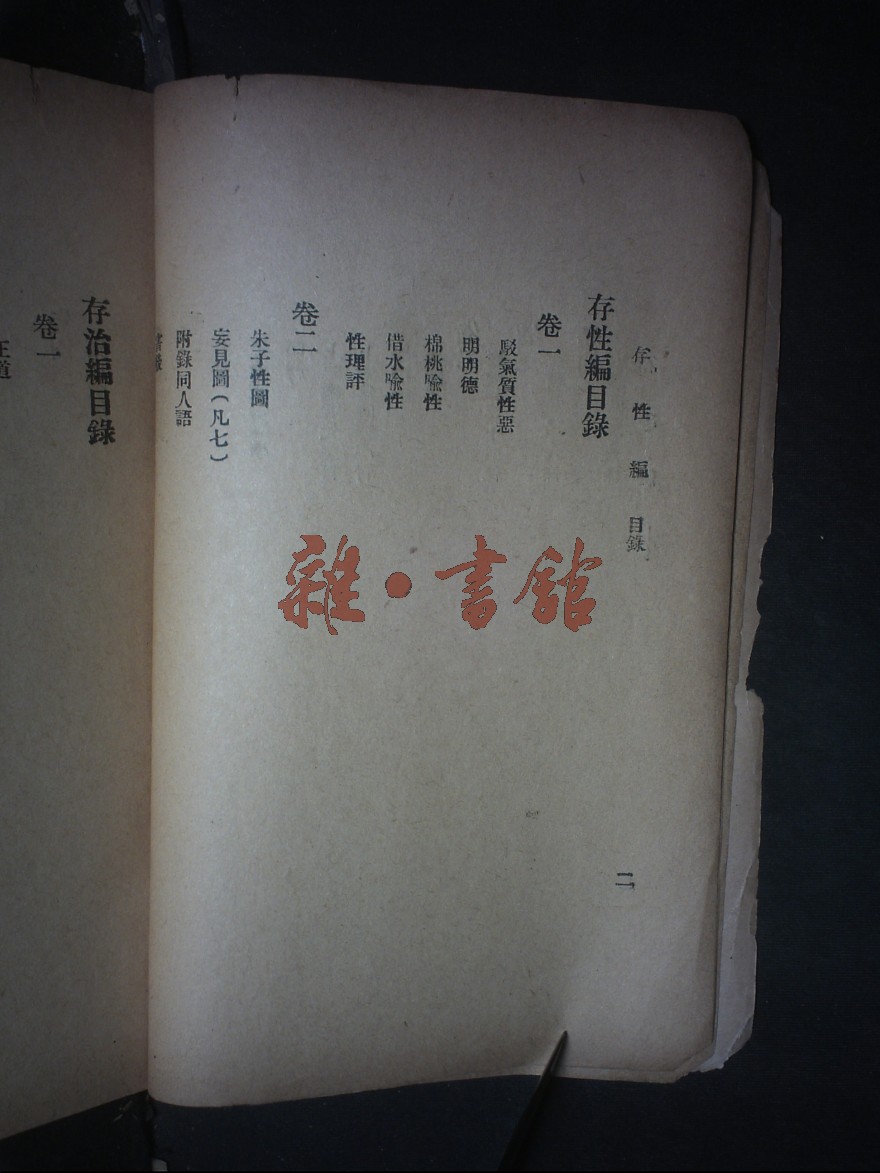 存性編 目錄
存性編目錄
卷一
駁氣質性惡
明明德
棉桃喻性
借水喻性
性理評
卷二
朱子性圖
妄見圖(凡七)
附錄同人語
書後
二
存治編目錄
卷一
王道
雜·書館